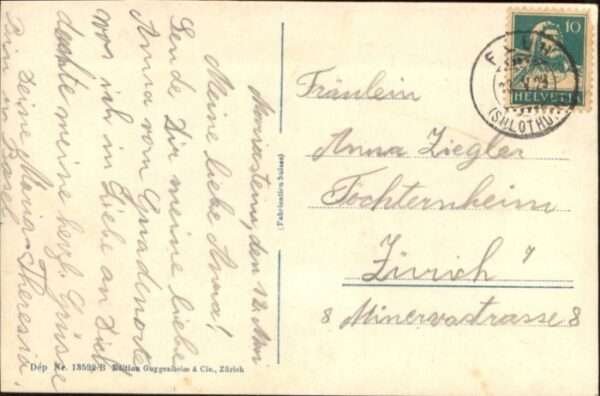 Mariastein, den 12. Mai
Meine liebe Anna!
Sende Dir meine liebe
Anna vom Gnadenorte
wo ich in Liebe an Dich
dachte meine herzl. Grüsse
Deine Maria-Theresia.
Bin in Basel
Dép Nr. 13592-B Edition Guggenheim & Cie., Zürich
(Fabrication Suisse)
10
HELVETIA
FLÜH
(SOLOTHURN)
Fräulein
Anna Ziegler
Tochternheim
Zürich 7
8 Minervastrasse 8